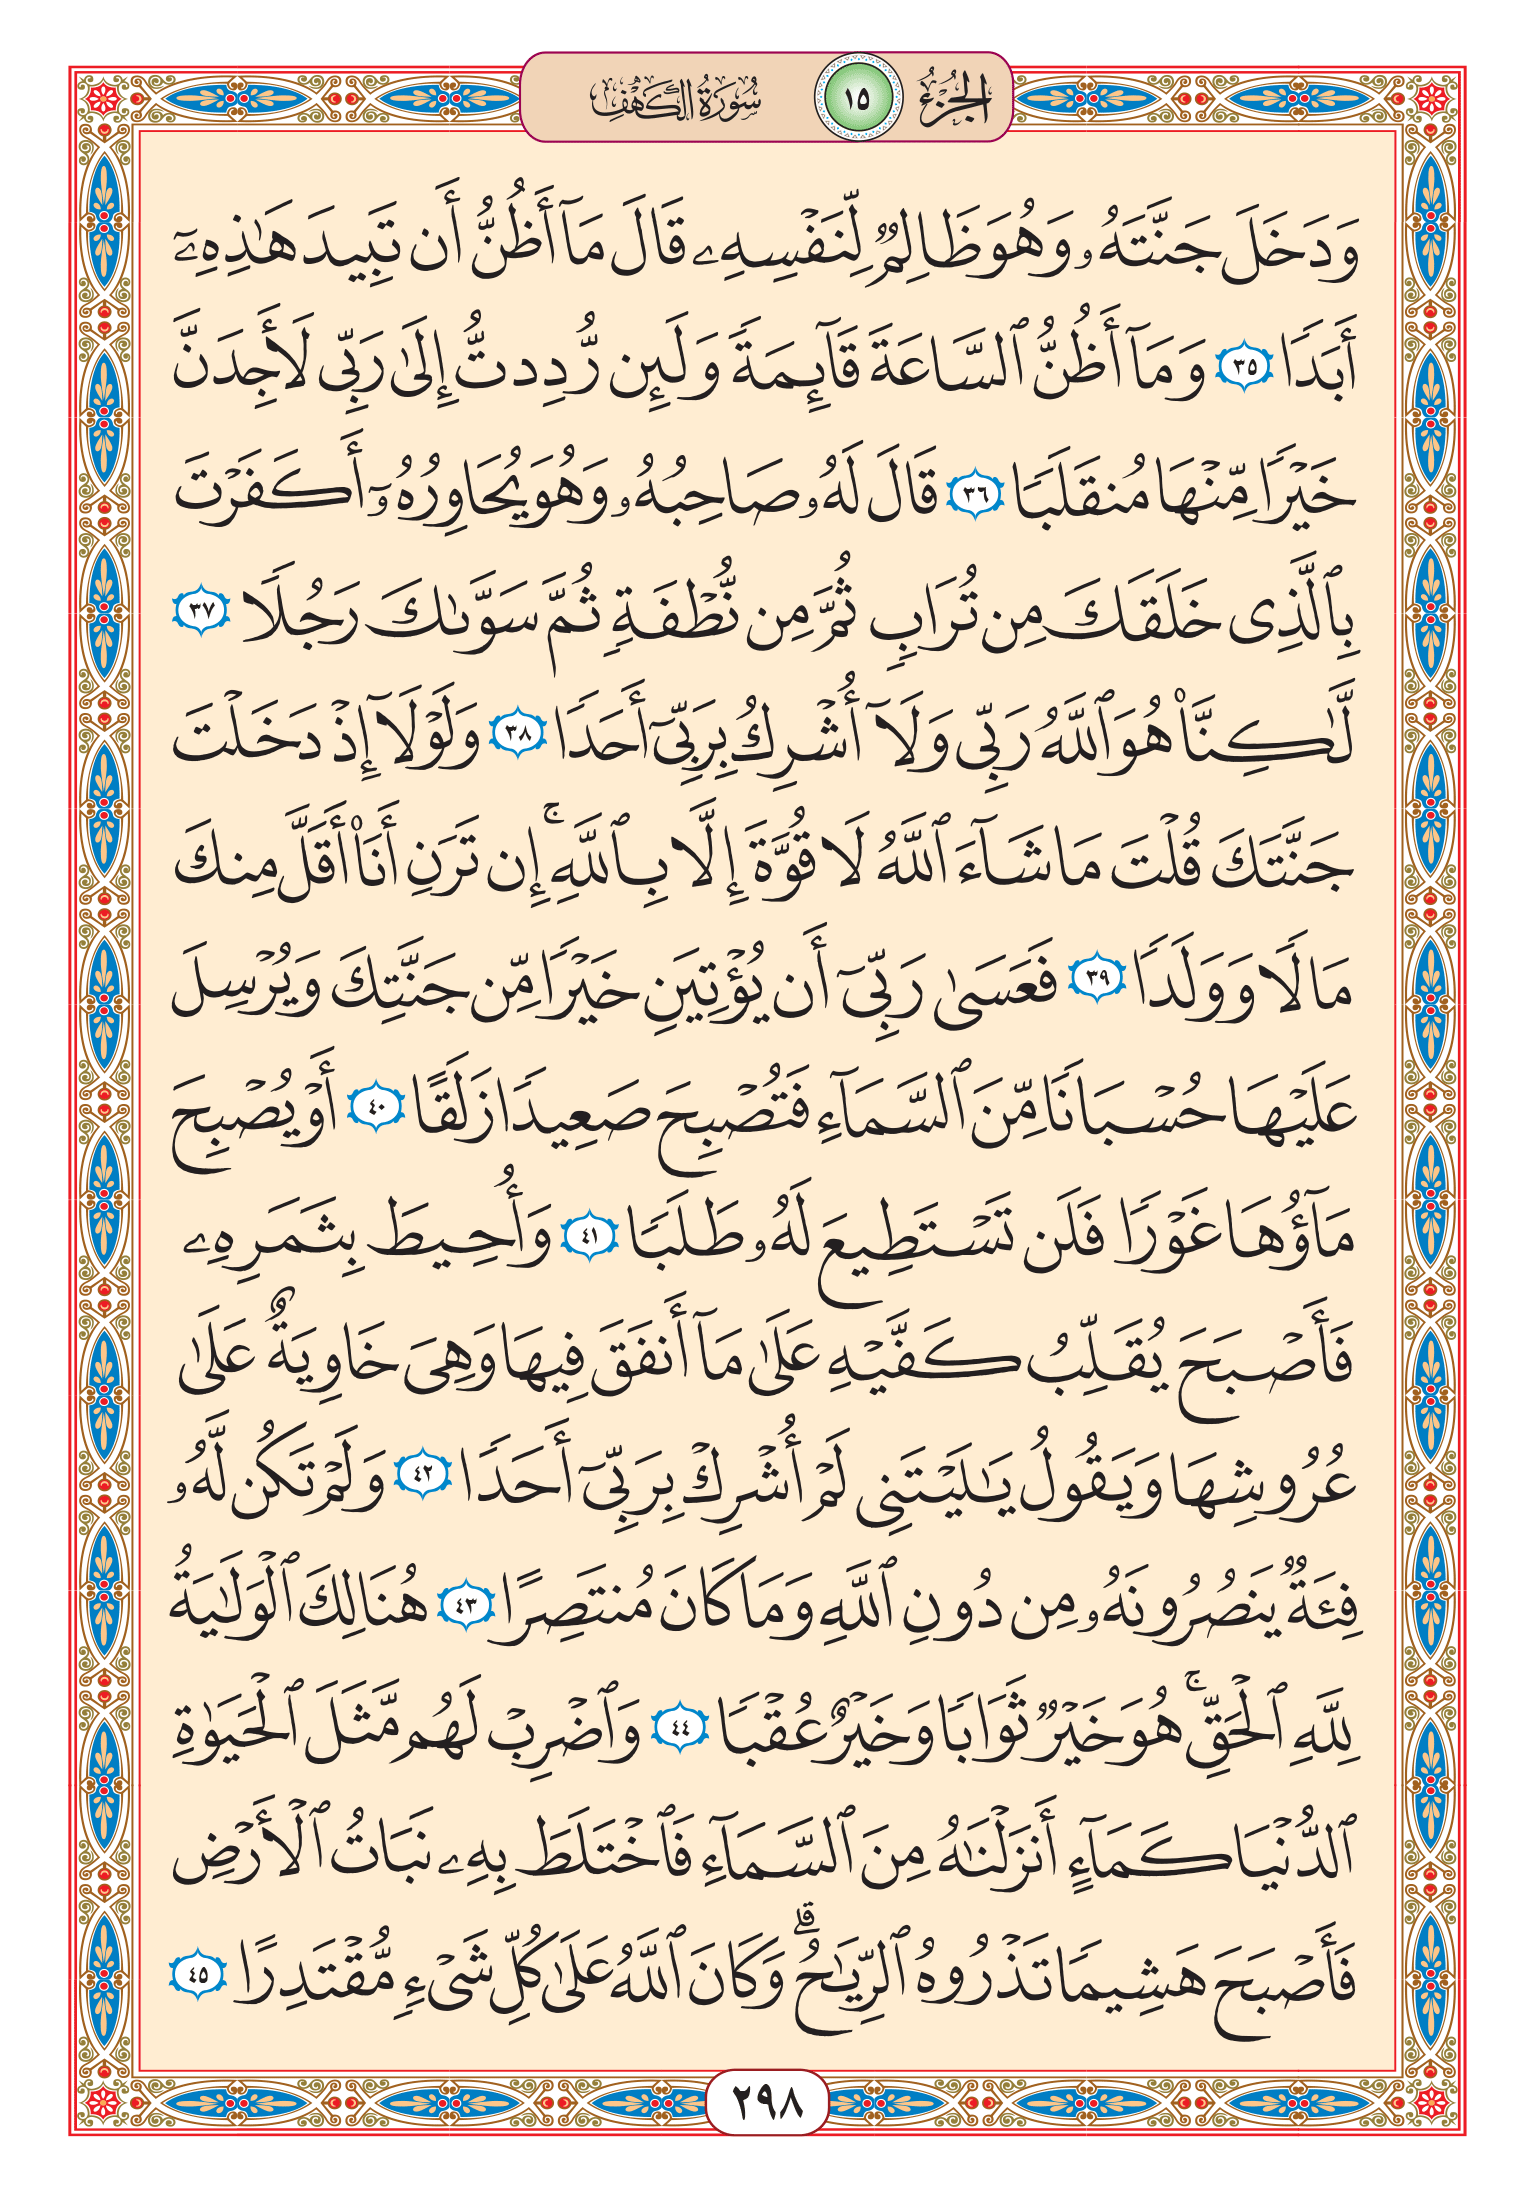 الجزء ١٥ سورة الكهف
وَدَخَلَ جَنَّتَهُۥ وَهُوَ ظَالِمٌ لِّنَفْسِهِۦ قَالَ مَآ أَظُنُّ أَن تَبِيدَ هَٰذِهِۦٓ
أَبَدًا ٣٥ وَمَآ أَظُنُّ ٱلسَّاعَةَ قَآئِمَةً وَلَئِن رُّدِدتُّ إِلَىٰ رَبِّى لَأَجِدَنَّ
خَيْرًا مِّنْهَا مُنقَلَبًا ٣٦ قَالَ لَهُۥ صَاحِبُهُۥ وَهُوَ يُحَاوِرُهُۥٓ أَكَفَرْتَ
بِٱلَّذِى خَلَقَكَ مِن تُرَابٍ ثُمَّ مِن نُّطْفَةٍ ثُمَّ سَوَّىٰكَ رَجُلًا ٣٧
لَّٰكِنَّا۠ هُوَ ٱللَّهُ رَبِّى وَلَآ أُشْرِكُ بِرَبِّىٓ أَحَدًا ٣٨ وَلَوْلَآ إِذْ دَخَلْتَ
جَنَّتَكَ قُلْتَ مَا شَآءَ ٱللَّهُ لَا قُوَّةَ إِلَّا بِٱللَّهِ ۚ إِن تَرَنِ أَنَا۠ أَقَلَّ مِنكَ
مَالًا وَوَلَدًا ٣٩ فَعَسَىٰ رَبِّىٓ أَن يُؤْتِيَنِ خَيْرًا مِّن جَنَّتِكَ وَيُرْسِلَ
عَلَيْهَا حُسْبَانًا مِّنَ ٱلسَّمَآءِ فَتُصْبِحَ صَعِيدًا زَلَقًا ٤٠ أَوْ يُصْبِحَ
مَآؤُهَا غَوْرًا فَلَن تَسْتَطِيعَ لَهُۥ طَلَبًا ٤١ وَأُحِيطَ بِثَمَرِهِۦ
فَأَصْبَحَ يُقَلِّبُ كَفَّيْهِ عَلَىٰ مَآ أَنفَقَ فِيهَا وَهِىَ خَاوِيَةٌ عَلَىٰ
عُرُوشِهَا وَيَقُولُ يَٰلَيْتَنِى لَمْ أُشْرِكْ بِرَبِّىٓ أَحَدًا ٤٢ وَلَمْ تَكُن لَّهُۥ
فِئَةٌ يَنصُرُونَهُۥ مِن دُونِ ٱللَّهِ وَمَا كَانَ مُنتَصِرًا ٤٣ هُنَالِكَ ٱلْوَلَٰيَةُ
لِلَّهِ ٱلْحَقِّ ۚ هُوَ خَيْرٌ ثَوَابًا وَخَيْرٌ عُقْبًا ٤٤ وَٱضْرِبْ لَهُم مَّثَلَ ٱلْحَيَوٰةِ
ٱلدُّنْيَا كَمَآءٍ أَنزَلْنَٰهُ مِنَ ٱلسَّمَآءِ فَٱخْتَلَطَ بِهِۦ نَبَاتُ ٱلْأَرْضِ
فَأَصْبَحَ هَشِيمًا تَذْرُوهُ ٱلرِّيَٰحُ ۗ وَكَانَ ٱللَّهُ عَلَىٰ كُلِّ شَىْءٍ مُّقْتَدِرًا ٤٥
٢٩٨